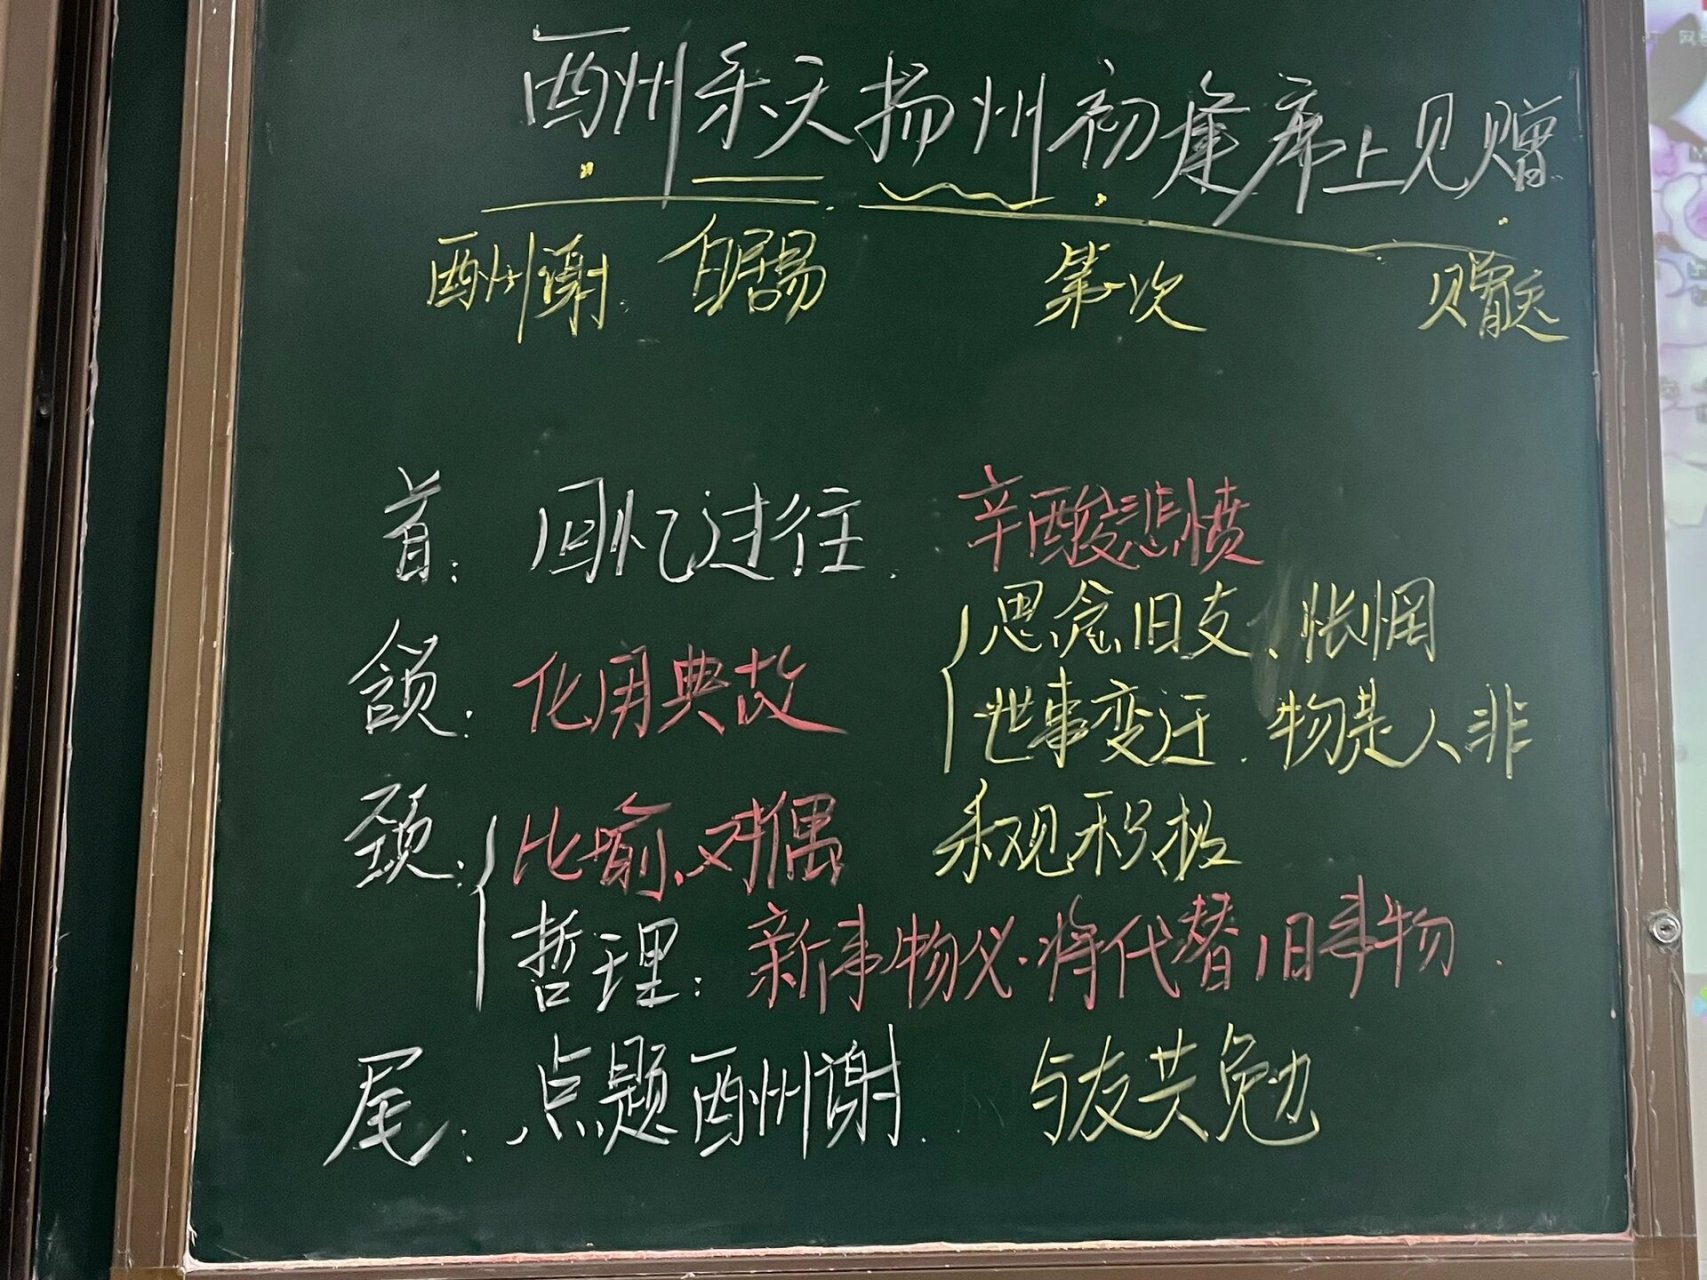 酬乐天扬州初逢席上见赠
酬谢 白居易 第一次 赠送
首: 回忆过往. 辛酸悲愤
颔: 化用典故 思念旧友、怅惘
世事变迁. 物是人非
颈: 比喻、对偶 乐观积极
哲理: 新事物必将代替旧事物.
尾: 点题酬谢. 与友共勉